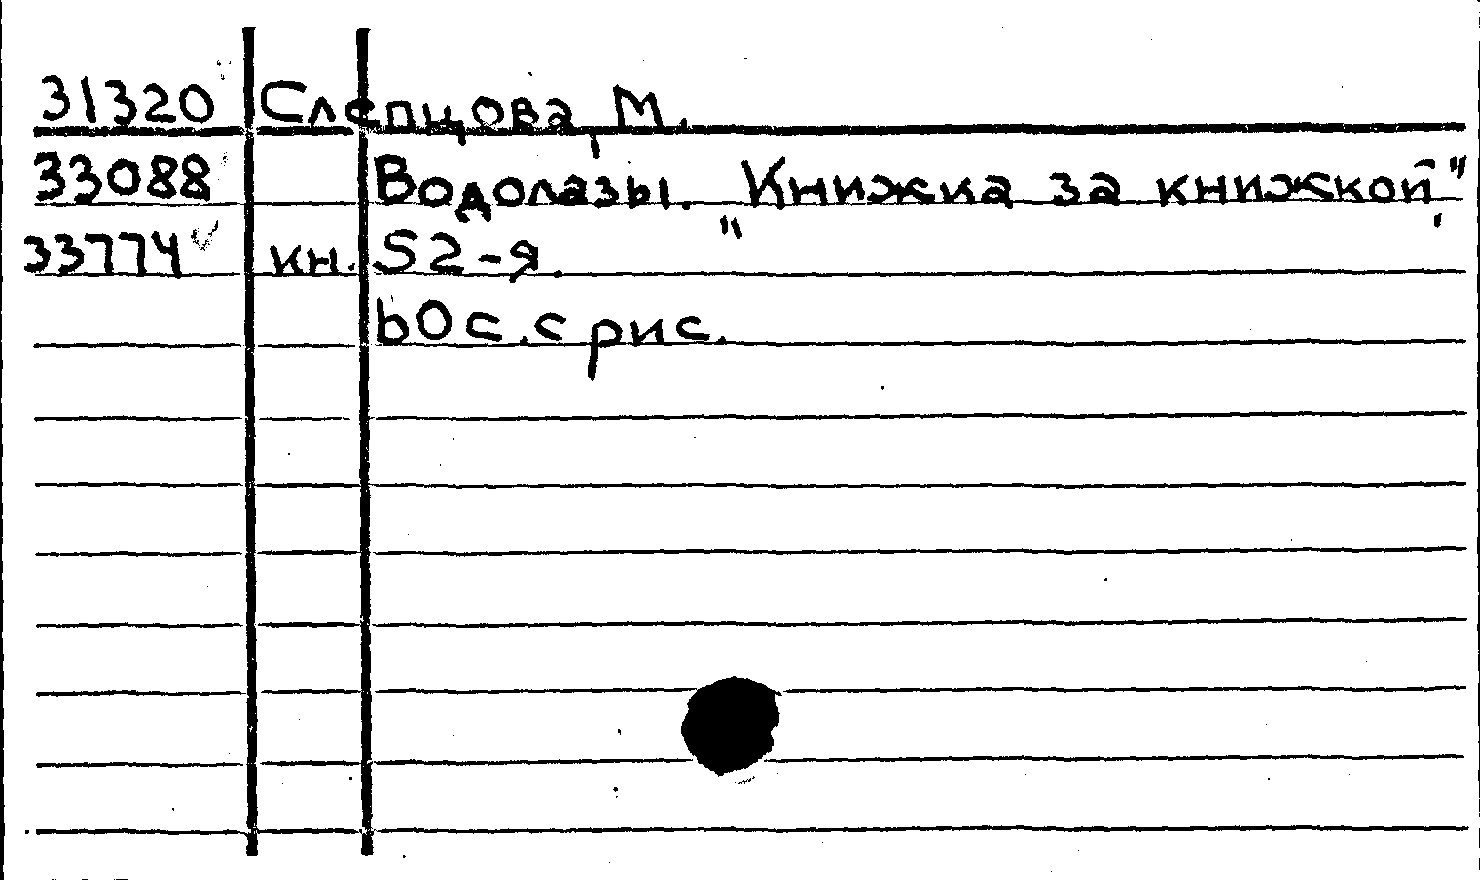 31320 Слепцова, М.
33088 Водолазы. "Книжка за книжкой",
33774 кн. 52-я.
60 с. с рис.